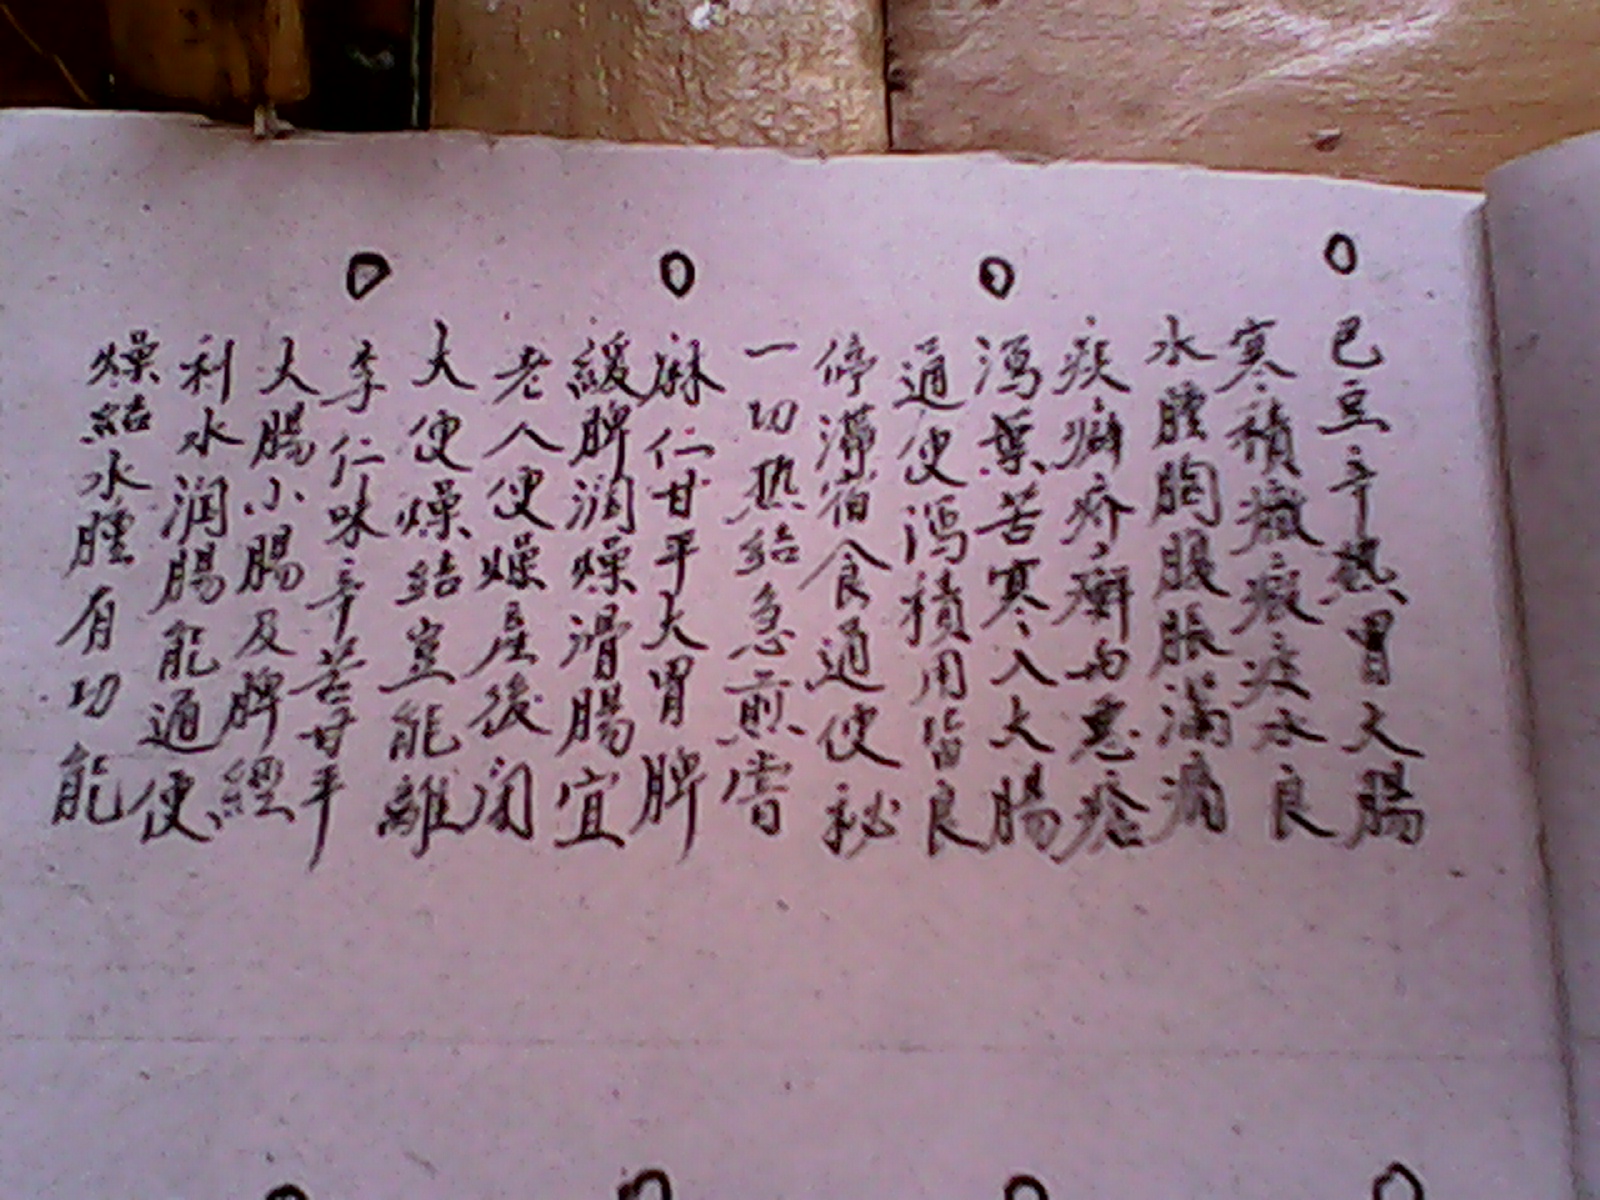 巴豆辛热胃大腸
寒積癥瘕痰水良
水腫胸腹脹滿痛
疾癖疥癬与惡瘡
瀉葉苦寒入大腸
通便瀉積用皆良
停滯宿食通便秘
一切热結急煎嘗
麻仁甘平大胃脾
緩脾润燥滑腸宜
老人便燥產後闭
大便燥結豈能離
李仁味辛苦甘平
大腸小腸及脾經
利水润腸能通便
燥結水腫有功能